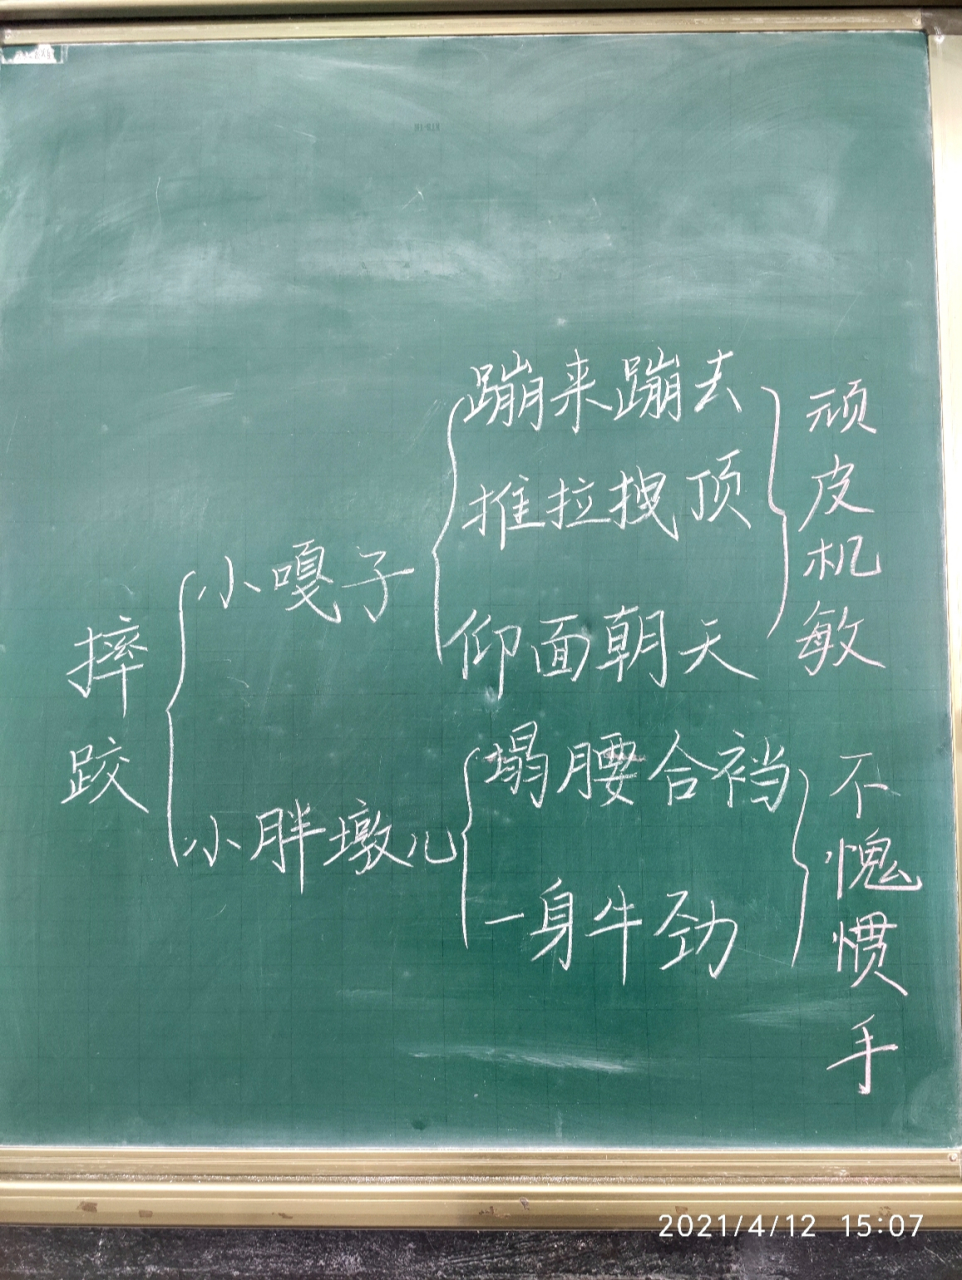 摔跤
小嘎子
蹦来蹦去
推拉拽顶
仰面朝天
顽皮机敏
小胖墩儿
塌腰合裆
一身牛劲
不愧惯手
2021/4/12 15:07